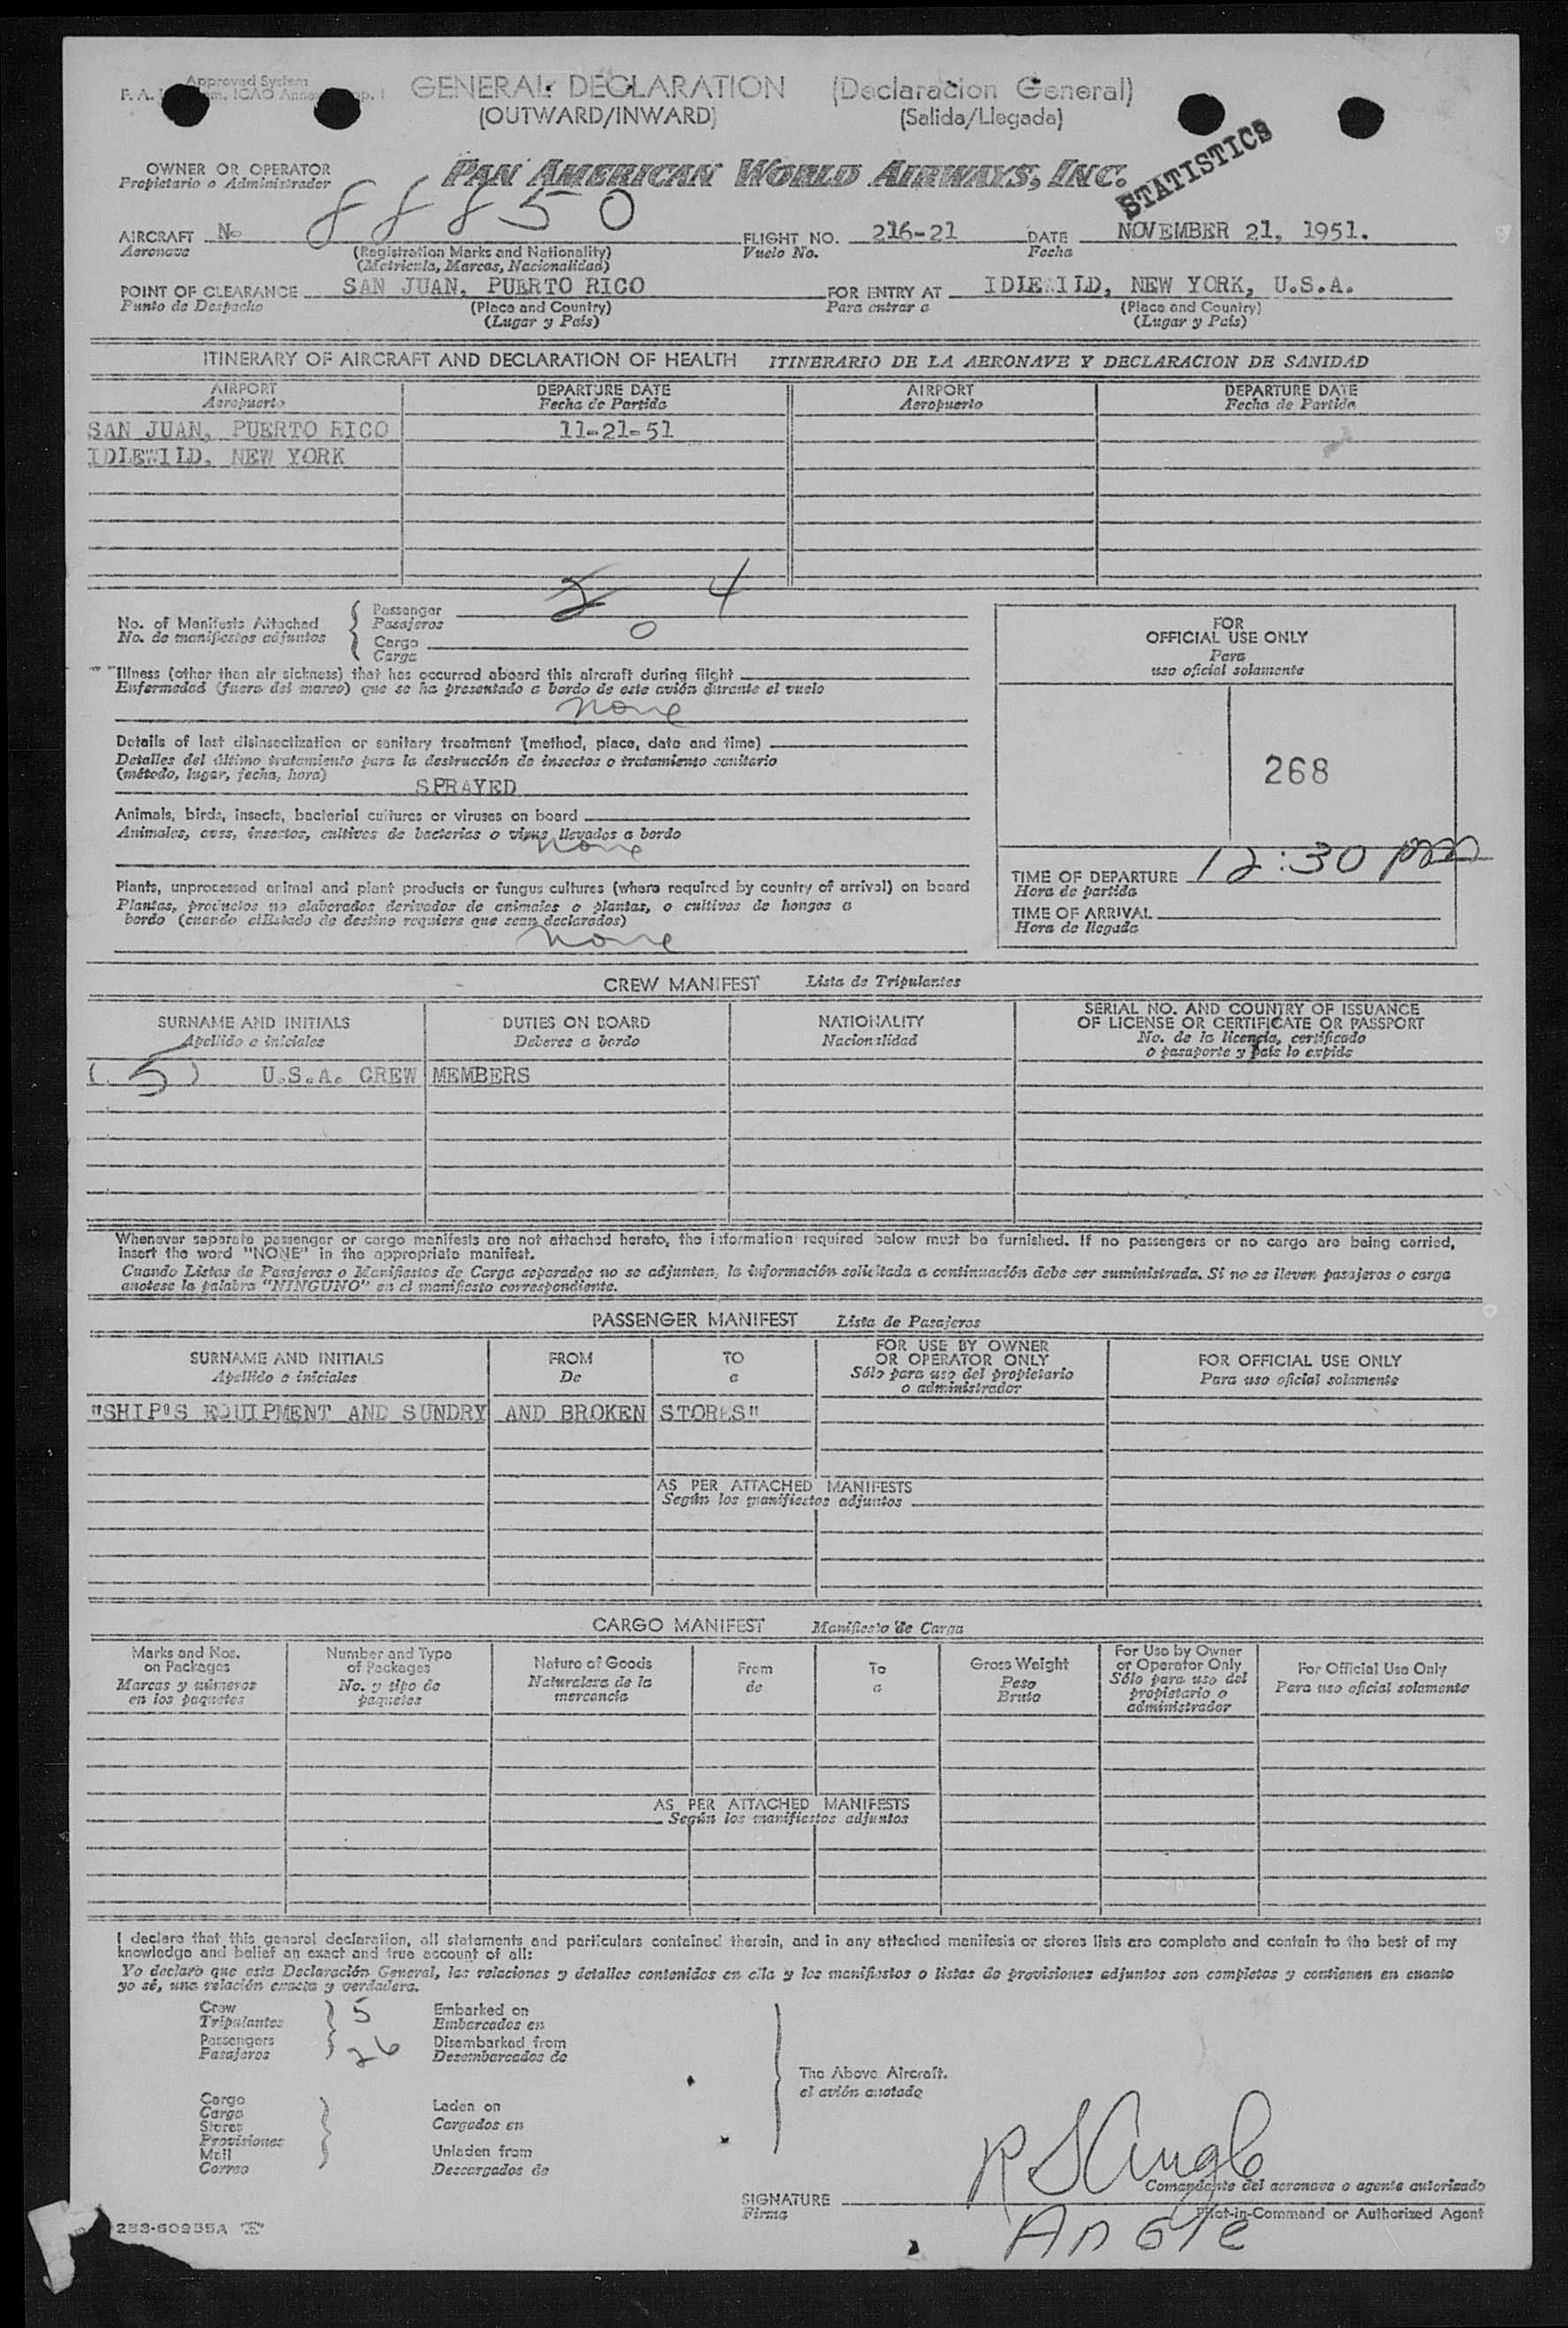 Approved System
GENERAL DECLARATION (Declaración General)
(OUTWARD/INWARD) (Salida/Llegada)
OWNER OR OPERATOR
Propietario o Administrador
PAN AMERICAN WORLD AIRWAYS, INC.
STATISTICS
AIRCRAFT No 88850 FLIGHT NO. 216-21 DATE NOVEMBER 21, 1951.
Aeronave (Registration Marks and Nationality) Vuelo No. Fecha
(Matricula, Marcas, Nacionalidad)
POINT OF CLEARANCE SAN JUAN, PUERTO RICO FOR ENTRY AT IDLEWILD, NEW YORK, U.S.A.
Punto de Despacho (Place and Country) Para entrar a (Place and Country)
(Lugar y País) (Lugar y País)
ITINERARY OF AIRCRAFT AND DECLARATION OF HEALTH ITINERARIO DE LA AERONAVE Y DECLARACION DE SANIDAD
AIRPORT DEPARTURE DATE AIRPORT DEPARTURE DATE
Aeropuerto Fecha de Partida Aeropuerto Fecha de Partida
SAN JUAN, PUERTO RICO 11-21-51
IDLEWILD, NEW YORK
No. of Manifests Attached
No. de manifiestos adjuntos
Passenger 2 4
Pasajeros
Cargo 0
Carga
Illness (other than air sickness) that has occurred aboard this aircraft during flight
Enfermedad (fuera del mareo) que se ha presentado a bordo de este avión durante el vuelo
none
Details of last disinsectization or sanitary treatment (method, place, date and time)
Detalles del último tratamiento para la destrucción de insectos o tratamiento sanitario
(método, lugar, fecha, hora)
SPRAYED
Animals, birds, insects, bacterial cultures or viruses on board
Animales, aves, insectos, cultivos de bacterias o virus llevados a bordo
none
Plants, unprocessed animal and plant products or fungus cultures (where required by country of arrival) on board
Plantas, productos no elaborados derivados de animales o plantas, o cultivos de hongos a
bordo (cuando elEstado de destino requiere que sean declarados)
none
FOR
OFFICIAL USE ONLY
Para
uso oficial solamente
268
TIME OF DEPARTURE 12:30 pm
Hora de partida
TIME OF ARRIVAL
Hora de llegada
CREW MANIFEST Lista de Tripulantes
SURNAME AND INITIALS DUTIES ON BOARD NATIONALITY SERIAL NO. AND COUNTRY OF ISSUANCE
OF LICENSE OR CERTIFICATE OR PASSPORT
Apellido e iniciales Deberes a bordo Nacionalidad No. de la licencia, certificado
o pasaporte y país lo expide
(5) U.S.A. CREW MEMBERS
Whenever separate passenger or cargo manifests are not attached hereto, the information required below must be furnished. If no passengers or no cargo are being carried,
insert the word "NONE" in the appropriate manifest.
Cuando Listas de Pasajeros o Manifiestos de Carga separados no se adjuntan, la información solicitada a continuación debe ser suministrada. Si no se llevan pasajeros o carga
anotese la palabra "NINGUNO" en el manifiesto correspondiente.
PASSENGER MANIFEST Lista de Pasajeros
SURNAME AND INITIALS FROM TO FOR USE BY OWNER
OR OPERATOR ONLY FOR OFFICIAL USE ONLY
Apellido e iniciales De a Sólo para uso del propietario
o administrador Para uso oficial solamente
"SHIP'S EQUIPMENT AND SUNDRY AND BROKEN STORES"
AS PER ATTACHED MANIFESTS
Según los manifiestos adjuntos
CARGO MANIFEST Manifiesto de Carga
Marks and Nos.
on Packages
Marcas y números
en los paquetes
Number and Type
of Packages
No. y tipo de
paquetes
Nature of Goods
Naturaleza de la
mercancia
From
de
To
a
Gross Weight
Peso
Bruto
For Use by Owner
or Operator Only
Sólo para uso del
propietario o
administrador
For Official Use Only
Para uso oficial solamente
AS PER ATTACHED MANIFESTS
Según los manifiestos adjuntos
I declare that this general declaration, all statements and particulars contained therein, and in any attached manifests or stores lists are complete and contain to the best of my
knowledge and belief an exact and true account of all:
Yo declaro que esta Declaración General, las relaciones y detalles contenidos en ella y los manifiestos o listas de provisiones adjuntos son completos y contienen en cuanto
yo sé, una relación exacta y verdadera.
Crew 5 Embarked on
Tripulantes Embarcados en
Passengers 26 Disembarked from
Pasajeros Desembarcados de
The Above Aircraft.
el avión anotado
Cargo
Carga
Stores
Provisiones
Mail
Correo
Laden on
Cargados en
Unladen from
Descargados de
R S Angle
Comandante del aeronave o agente autorizado
SIGNATURE
Firma
Pilot-in-Command or Authorized Agent
Angle
253-60955A "E"